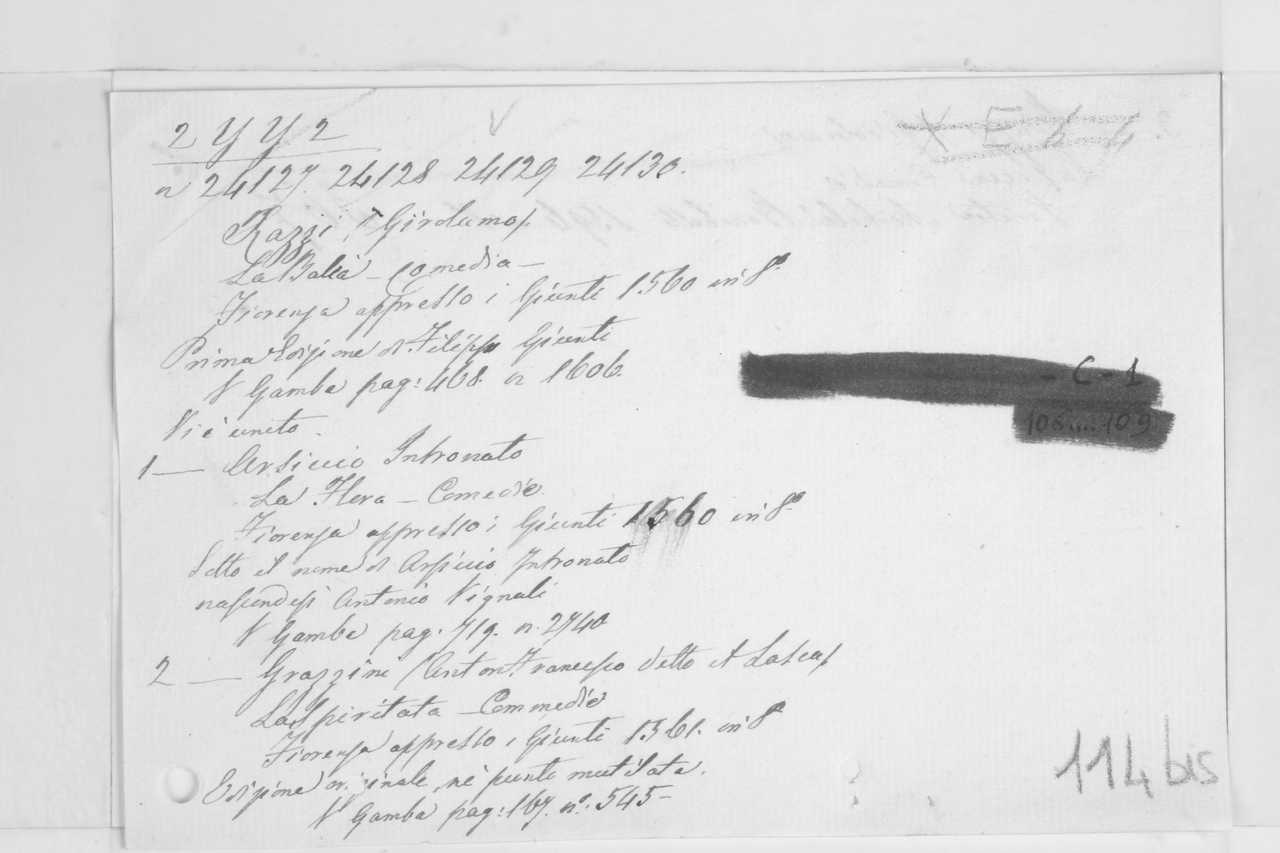 2 Y Y 2
n 24127. 24128 24129 24130.
Razzi (Girolamo)
La Balia - Comedia -
Fiorenza appresso i Giunti 1560 in 8º
Prima Edizione di Filippo Giunti
V Gamba pag: 468. n 1606.
Vi è unito.
- C - 1
106....109
1 — Arsiccio Intronato
La Flora - Comedia
Fiorenza appresso i Giunti 1560 in 8º
Sotto il nome di Arsiccio Intronato
nascondesi Antonio Vignali
V Gamba pag. 719. n. 2740
2 — Grazzini (Anton Francesco detto il Lasca)
La Spiritata - Commedia
Fiorenza appresso i Giunti 1561. in 8º
Edizione originale, nè punto mutilata.
V Gamba pag: 167. nº. 545 -
114 bis